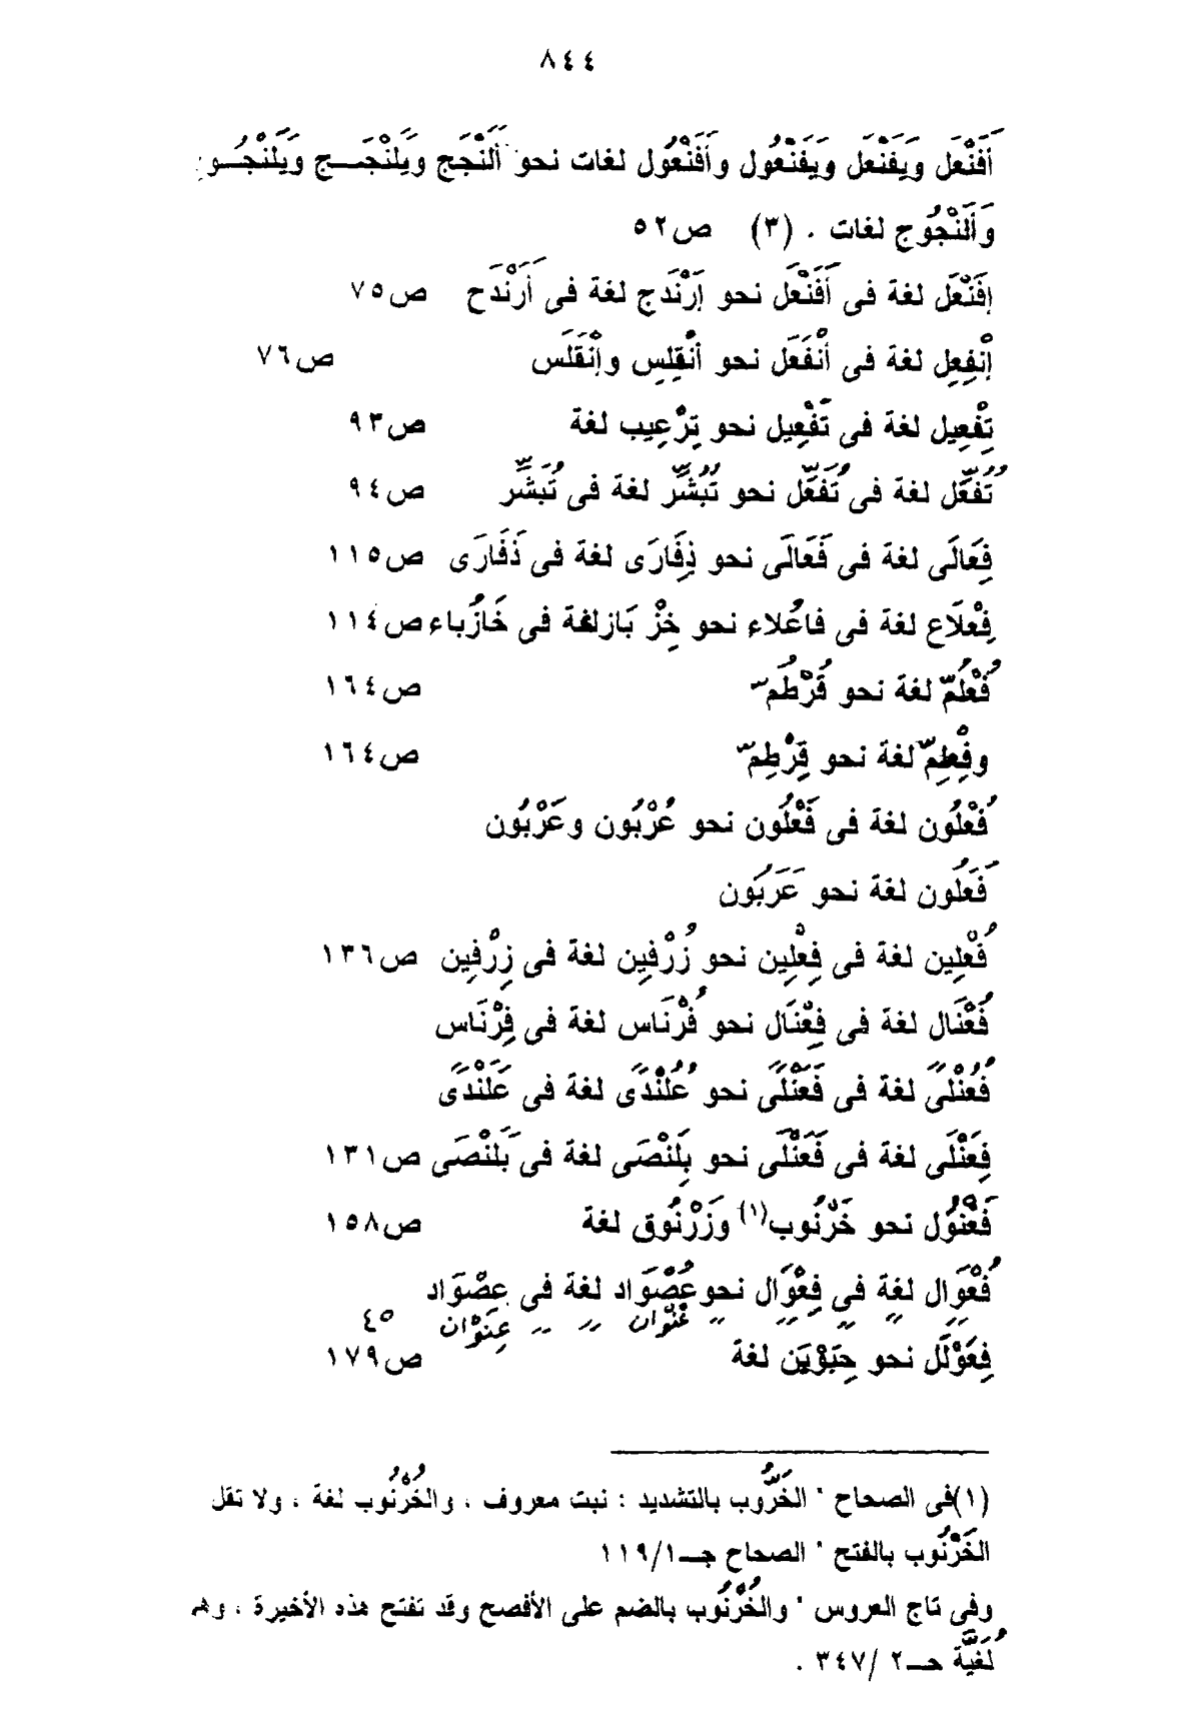 ٨٤٤
أَفَنْعَل وَيَفَنْعَل وَيَفَنْعُول وأَفَنْعُول لغات نحو أَلَنْجَج ويَلَنْجَـــج وَيَلَنْجُـــو
وَأَلَنْجُوج لغات . (٣) ص٥٢
إفَنْعَل لغة فى أَفَنْعَل نحو إرَنْدَج لغة فى أَرَنْدَح ص٧٥
إنْفِعِل لغة فى أَنْفَعَل نحو أنْقِلِس وإنْقَلَس ص٧٦
تِفْعِيل لغة فى تَفْعِيل نحو تِرْعِيب لغة ص٩٣
تُفُعِّل لغة فى تُفَعِّل نحو تُبُشِّر لغة فى تُبَشِّر ص٩٤
فِعَالَى لغة فى فَعَالَى نحو ذِفَارَى لغة فى ذَفَارَى ص١١٥
فِعْلَاع لغة فى فاعُلاء نحو خِزْ بَاز لغة فى خَازُباء ص١١٤
فُعْلُمّ لغة نحو قُرْطُمّ ص١٦٤
وفِعْلِمّ لغة نحو قِرْطِمّ ص١٦٤
فُعْلُون لغة فى فَعْلُون نحو عُرْبُون وعَرْبُون
فَعَلُون لغة نحو عَرَبُون
فُعْلِين لغة فى فِعْلِين نحو زُرْفِين لغة فى زِرْفِين ص١٣٦
فُعْنَال لغة فى فِعْنَال نحو فُرْنَاس لغة فى فِرْنَاس
فُعُنْلًى لغة فى فَعَنْلًى نحو عُلُنْدًى لغة فى عَلَنْدًى
فِعَنْلَى لغة فى فَعَنْلَى نحو بِلَنْصَى لغة فى بَلَنْصَى ص١٣١
فَعْنُول نحو خَرْنُوب(١) وَزَرْنُوق لغة ص١٥٨
فُعْوَال لغة في فِعْوَال نحو عُصْوَاد لغة فى عِصْوَاد
,, ,, ,, ,, ,, عُنْوَان ,, ,, عِنْوَان ٤٥
فِعَوْلَل نحو حِبَوْيَن لغة ص١٧٩
(١)فى الصحاح " الخَرُّوب بالتشديد : نبت معروف ، والخُرْنُوب لغة ، ولا تقل
الخَرْنُوب بالفتح " الصحاح جـــ١١٩/١
وفى تاج العروس " والخُرْنُوب بالضم على الأفصح وقد تفتح هذه الأخيرة ، وهى
لُغَيَّة حـــ٢ /٣٤٧ .